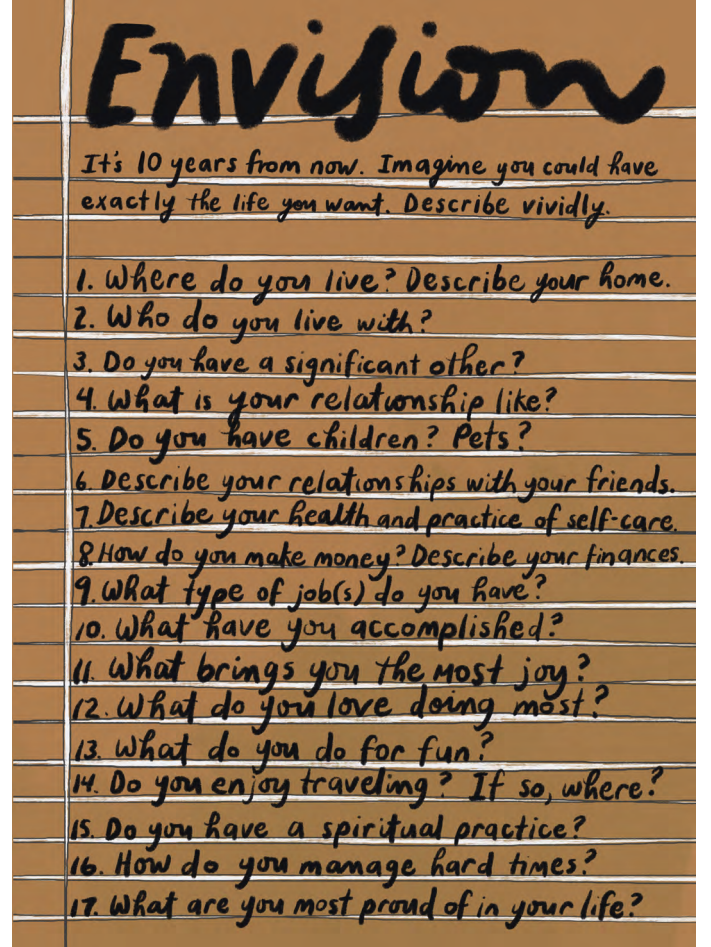 Envision
It's 10 years from now. Imagine you could have
exactly the life you want. Describe vividly.
1. Where do you live? Describe your home.
2. Who do you live with?
3. Do you have a significant other?
4. What is your relationship like?
5. Do you have children? Pets?
6. Describe your relationships with your friends.
7. Describe your health and practice of self-care.
8. How do you make money? Describe your finances.
9. What type of job(s) do you have?
10. What have you accomplished?
11. What brings you the most joy?
12. What do you love doing most?
13. What do you do for fun?
14. Do you enjoy traveling? If so, where?
15. Do you have a spiritual practice?
16. How do you manage hard times?
17. What are you most proud of in your life?